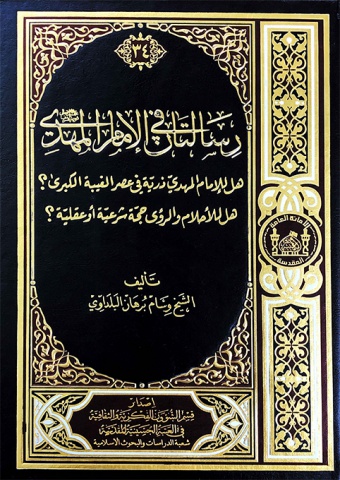 ٣٤
رسالتان في الإمام المهدي
هل للإمام المهدي ذرية في عصر الغيبة الكبرى؟
هل للأحلام والرؤى حجة شرعية أو عقلية؟
تأليف
الشيخ وسام برهان البلداوي
الأمانة العامة
المقدسة
إصدار
قسم الشؤون الفكرية والثقافية
في العتبة الحسينية المقدسة
شعبة الدراسات والبحوث الاسلامية